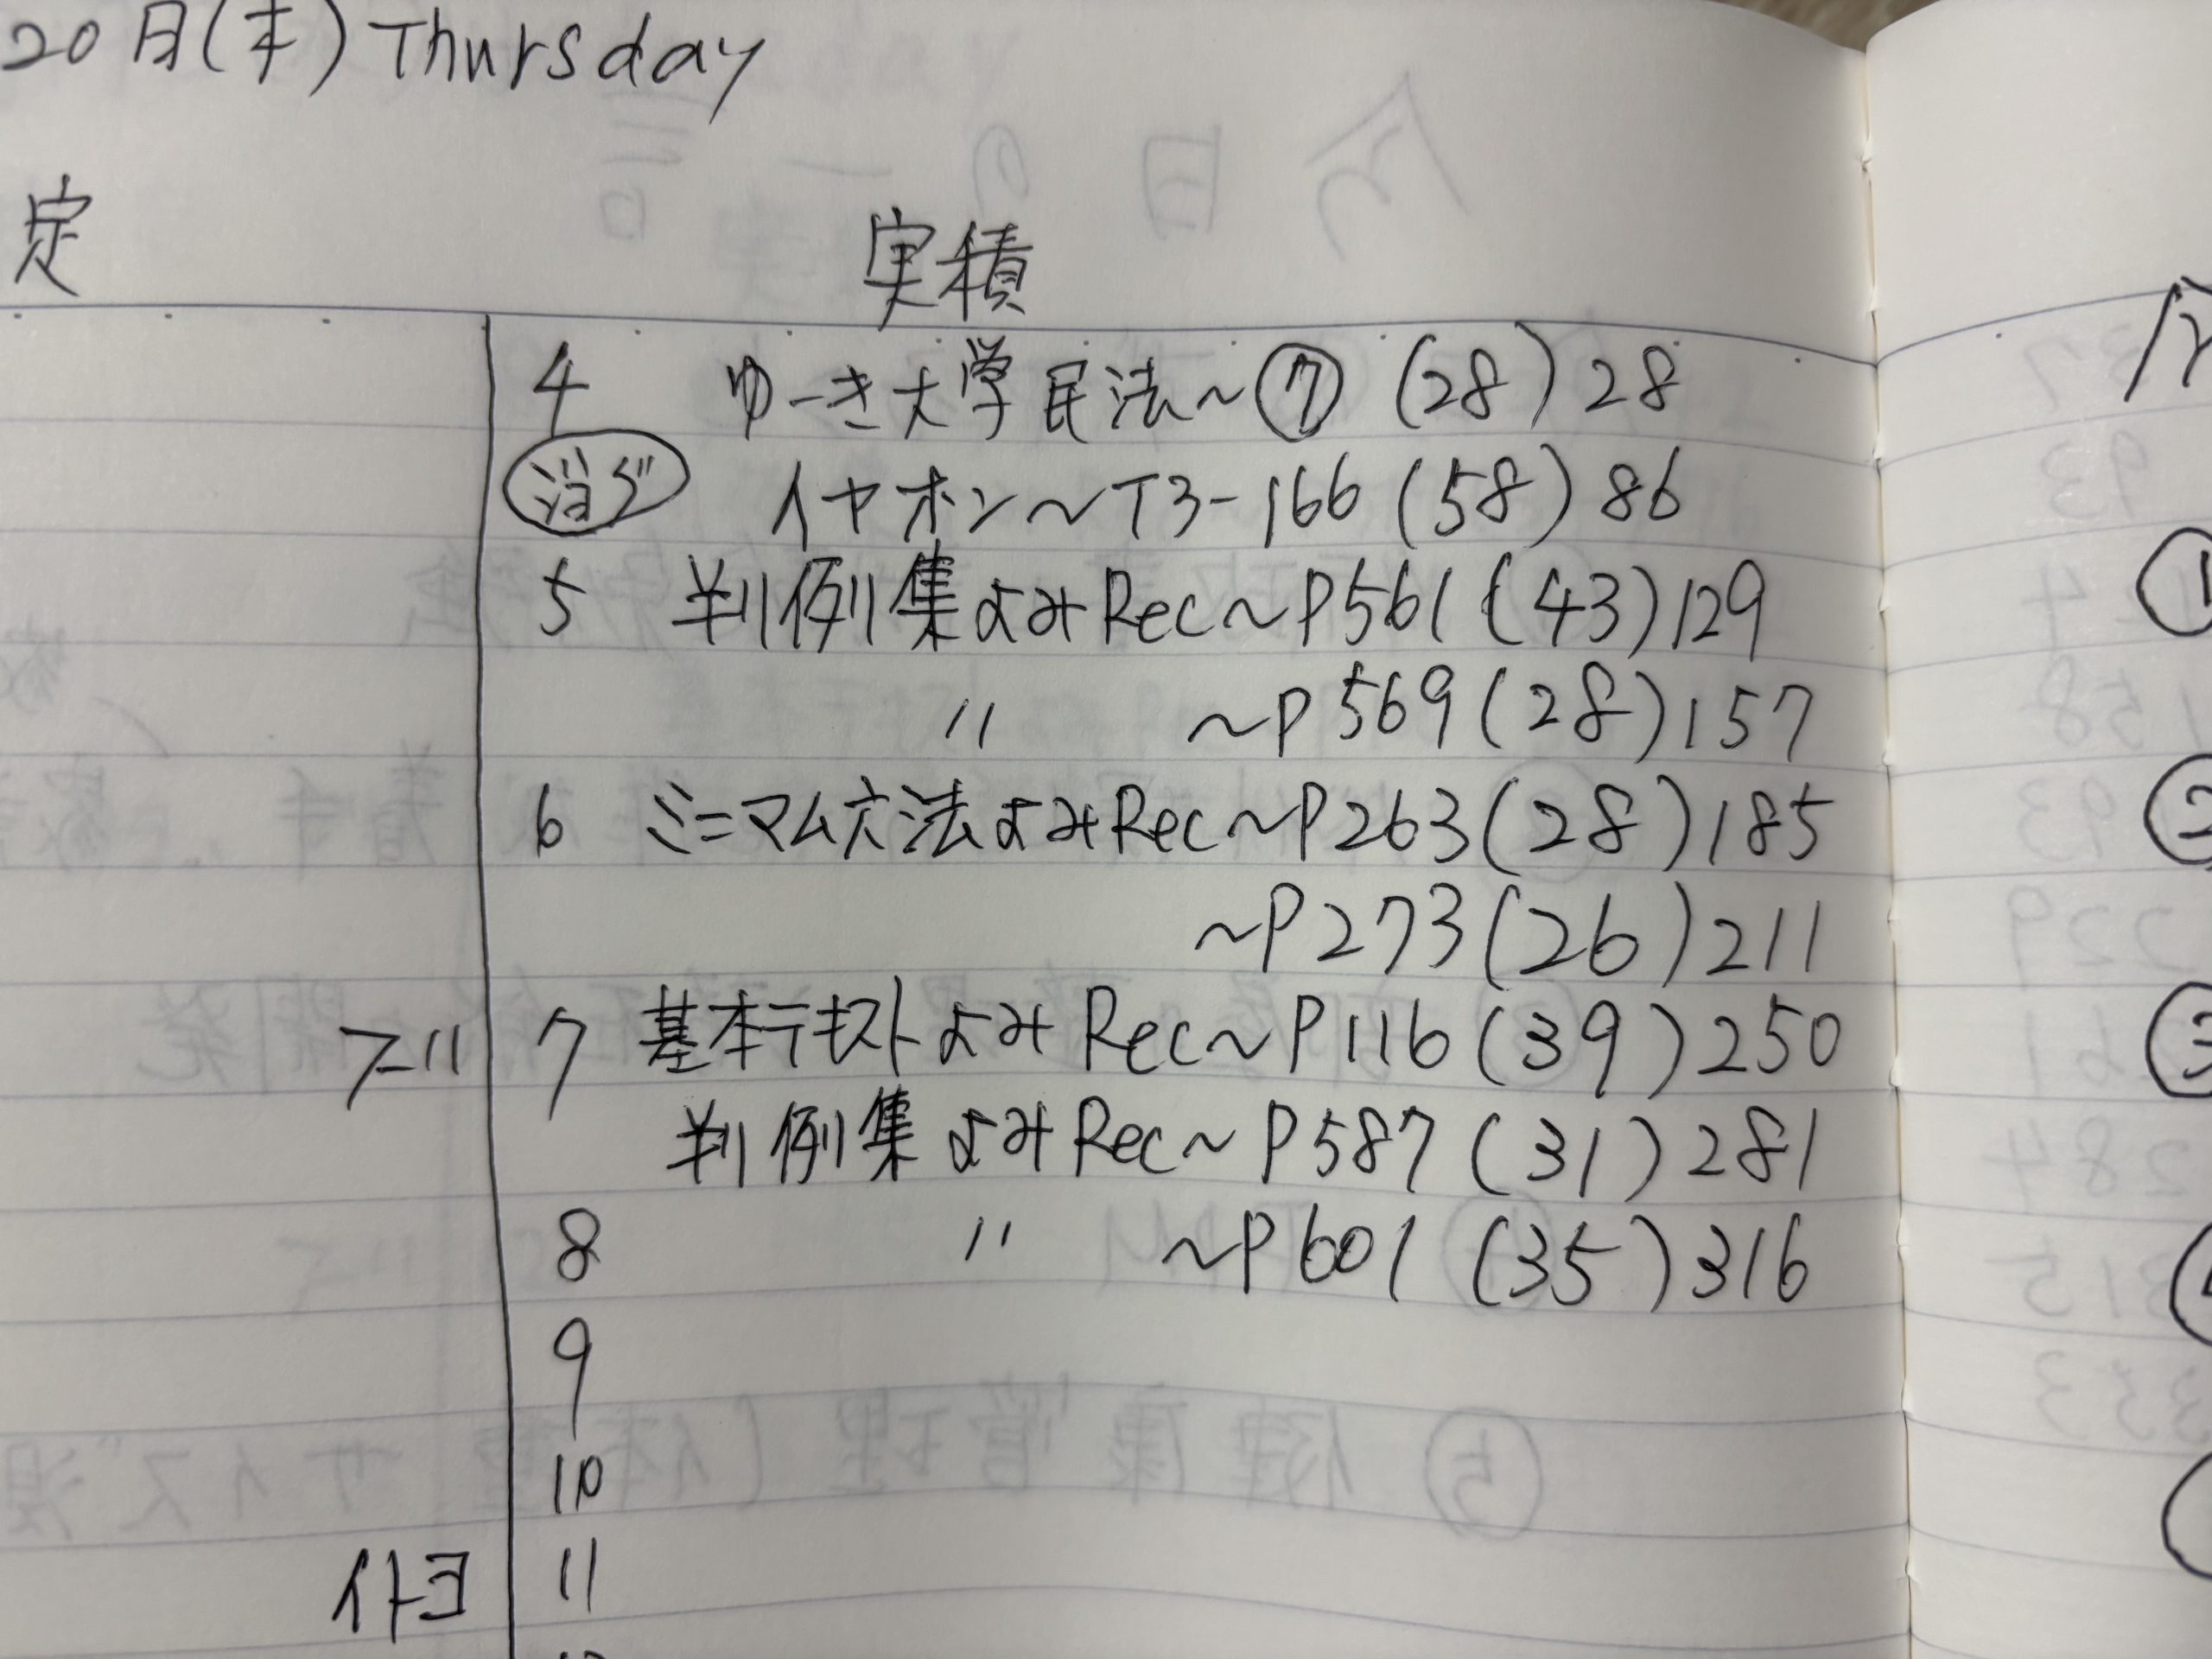 20日(木) Thursday
定
実積
4 ゆーき大学民法~⑦ (28) 28
イヤホン~T3-166 (58) 86
5 判例集よみRec~P561 (43) 129
〃 ~P569 (28) 157
6 ミニマム六法よみRec~P263 (28) 185
~P273 (26) 211
7 基本テキストよみRec~P116 (39) 250
判例集よみRec~P587 (31) 281
8 〃 ~P601 (35) 316
9
10
11
①
②
③